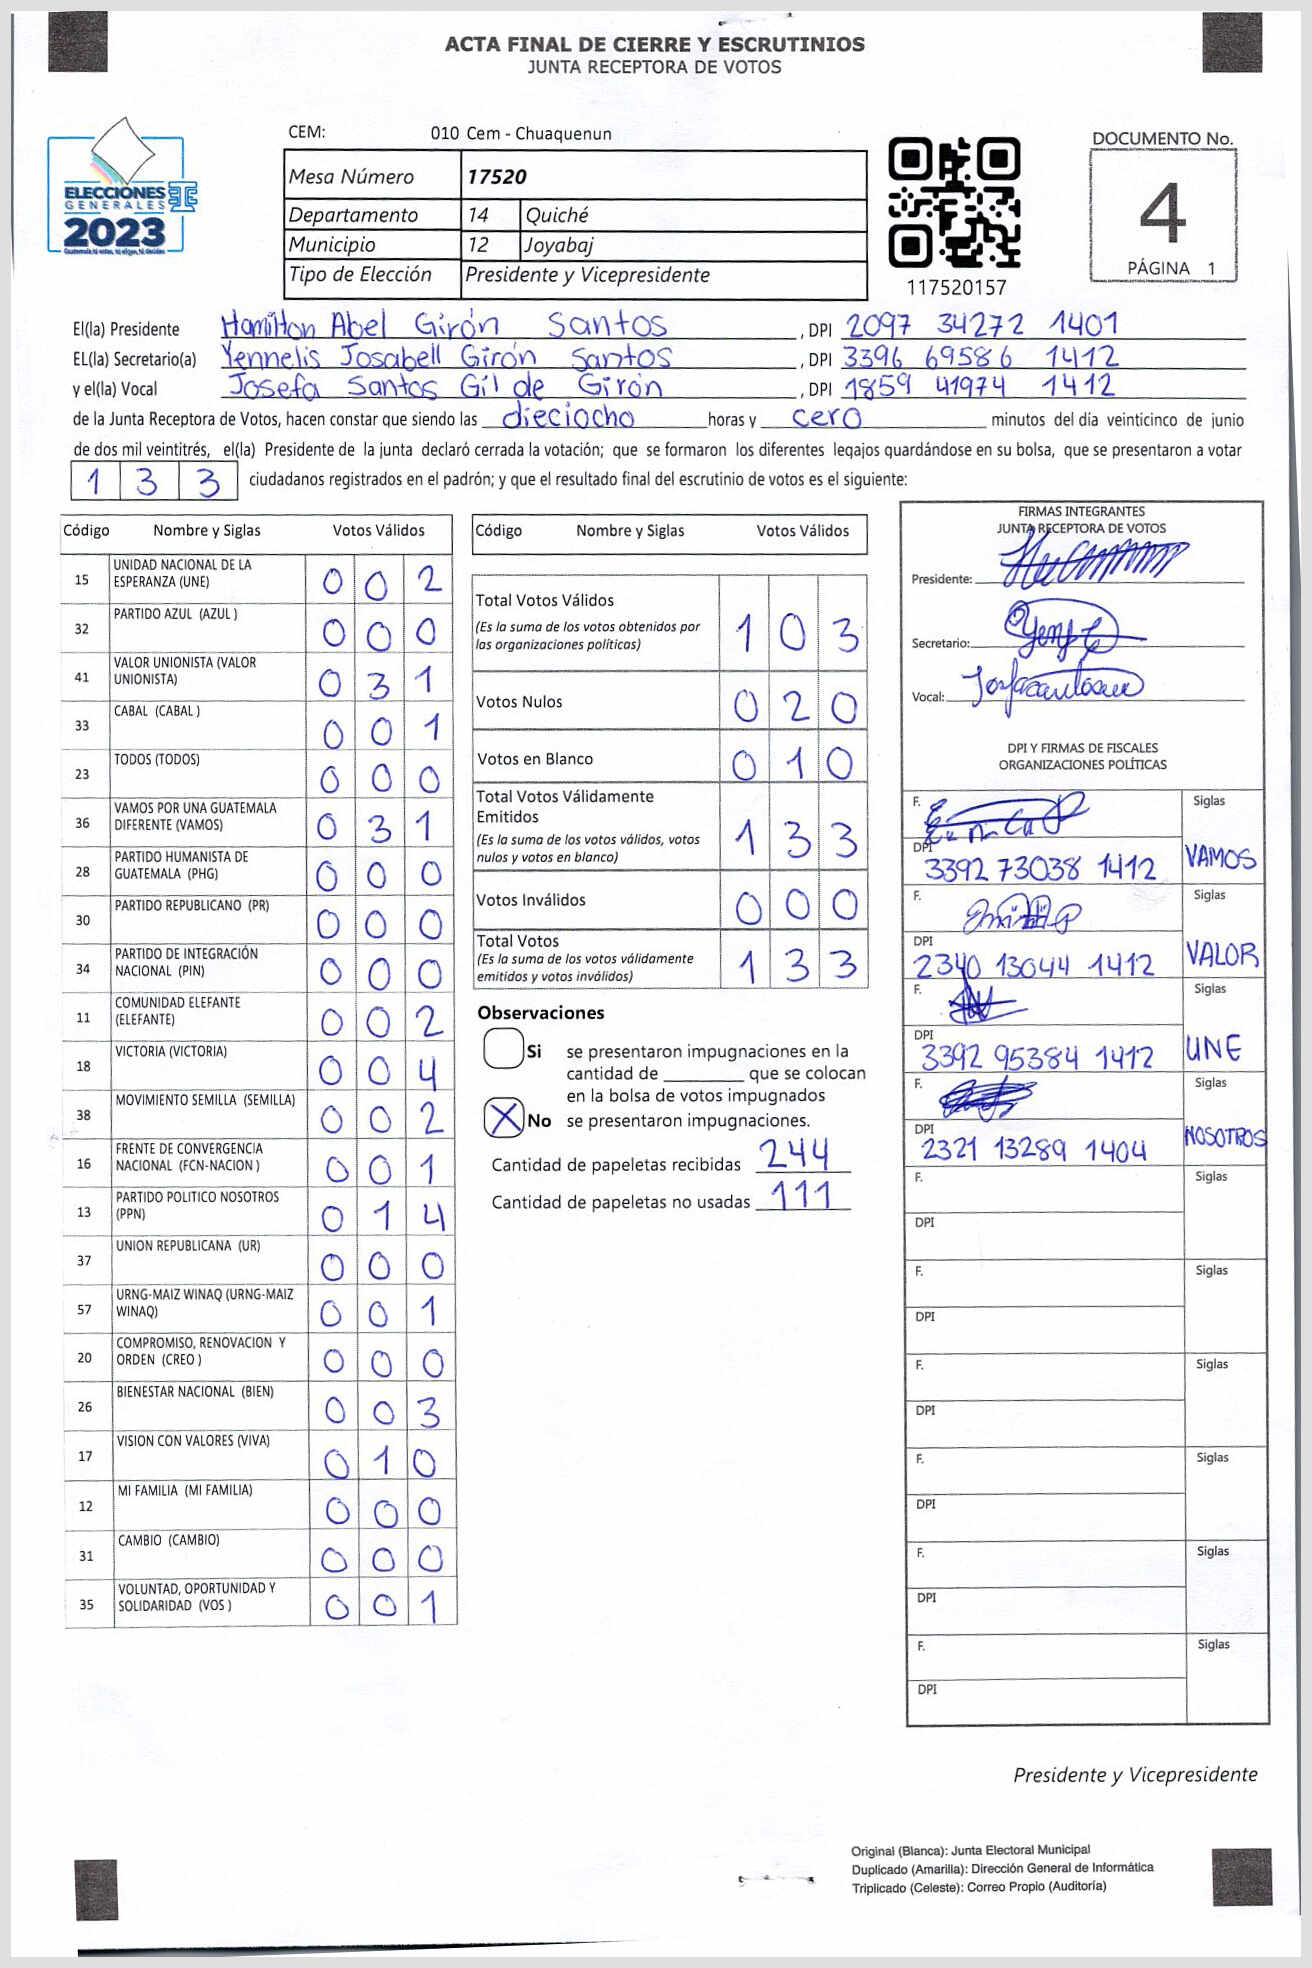 ACTA FINAL DE CIERRE Y ESCRUTINIOS
JUNTA RECEPTORA DE VOTOS
ELECCIONES
GENERALES
2023
CEM: 010 Cem - Chuaquenun
Mesa Número 17520
Departamento 14 Quiché
Municipio 12 Joyabaj
Tipo de Elección Presidente y Vicepresidente
117520157
DOCUMENTO No.
4
PÁGINA 1
El(la) Presidente Hamilton Abel Girón Santos , DPI 2097 34272 1401
EL(la) Secretario(a) Yennelis Josabell Girón Santos , DPI 3396 69586 1412
y el(la) Vocal Josefa Santos Gil de Girón , DPI 1859 41974 1412
de la Junta Receptora de Votos, hacen constar que siendo las dieciocho horas y cero minutos del día veinticinco de junio
de dos mil veintitrés, el(la) Presidente de la junta declaró cerrada la votación; que se formaron los diferentes legajos guardándose en su bolsa, que se presentaron a votar
133 ciudadanos registrados en el padrón; y que el resultado final del escrutinio de votos es el siguiente:
Código Nombre y Siglas Votos Válidos
15 UNIDAD NACIONAL DE LA ESPERANZA (UNE) 002
32 PARTIDO AZUL (AZUL ) 000
41 VALOR UNIONISTA (VALOR UNIONISTA) 031
33 CABAL (CABAL ) 001
23 TODOS (TODOS) 000
36 VAMOS POR UNA GUATEMALA DIFERENTE (VAMOS) 031
28 PARTIDO HUMANISTA DE GUATEMALA (PHG) 000
30 PARTIDO REPUBLICANO (PR) 000
34 PARTIDO DE INTEGRACIÓN NACIONAL (PIN) 000
11 COMUNIDAD ELEFANTE (ELEFANTE) 002
18 VICTORIA (VICTORIA) 004
38 MOVIMIENTO SEMILLA (SEMILLA) 002
16 FRENTE DE CONVERGENCIA NACIONAL (FCN-NACION ) 001
13 PARTIDO POLITICO NOSOTROS (PPN) 014
37 UNION REPUBLICANA (UR) 000
57 URNG-MAIZ WINAQ (URNG-MAIZ WINAQ) 001
20 COMPROMISO, RENOVACION Y ORDEN (CREO ) 000
26 BIENESTAR NACIONAL (BIEN) 003
17 VISION CON VALORES (VIVA) 010
12 MI FAMILIA (MI FAMILIA) 000
31 CAMBIO (CAMBIO) 000
35 VOLUNTAD, OPORTUNIDAD Y SOLIDARIDAD (VOS ) 001
Código Nombre y Siglas Votos Válidos
Total Votos Válidos
(Es la suma de los votos obtenidos por las organizaciones políticas) 103
Votos Nulos 020
Votos en Blanco 010
Total Votos Válidamente Emitidos
(Es la suma de los votos válidos, votos nulos y votos en blanco) 133
Votos Inválidos 000
Total Votos
(Es la suma de los votos válidamente emitidos y votos inválidos) 133
Observaciones
Si se presentaron impugnaciones en la
cantidad de ________ que se colocan
en la bolsa de votos impugnados
X No se presentaron impugnaciones.
Cantidad de papeletas recibidas 244
Cantidad de papeletas no usadas 111
FIRMAS INTEGRANTES
JUNTA RECEPTORA DE VOTOS
Presidente:
Secretario:
Vocal:
DPI Y FIRMAS DE FISCALES
ORGANIZACIONES POLÍTICAS
F. Siglas
DPI 3392 73038 1412 VAMOS
F. Siglas
DPI 2340 13044 1412 VALOR
F. Siglas
DPI 3392 95384 1412 UNE
F. Siglas
DPI 2321 13289 1404 NOSOTROS
F. Siglas
DPI
F. Siglas
DPI
F. Siglas
DPI
F. Siglas
DPI
F. Siglas
DPI
F. Siglas
DPI
Presidente y Vicepresidente
Original (Blanca): Junta Electoral Municipal
Duplicado (Amarilla): Dirección General de Informática
Triplicado (Celeste): Correo Propio (Auditoría)